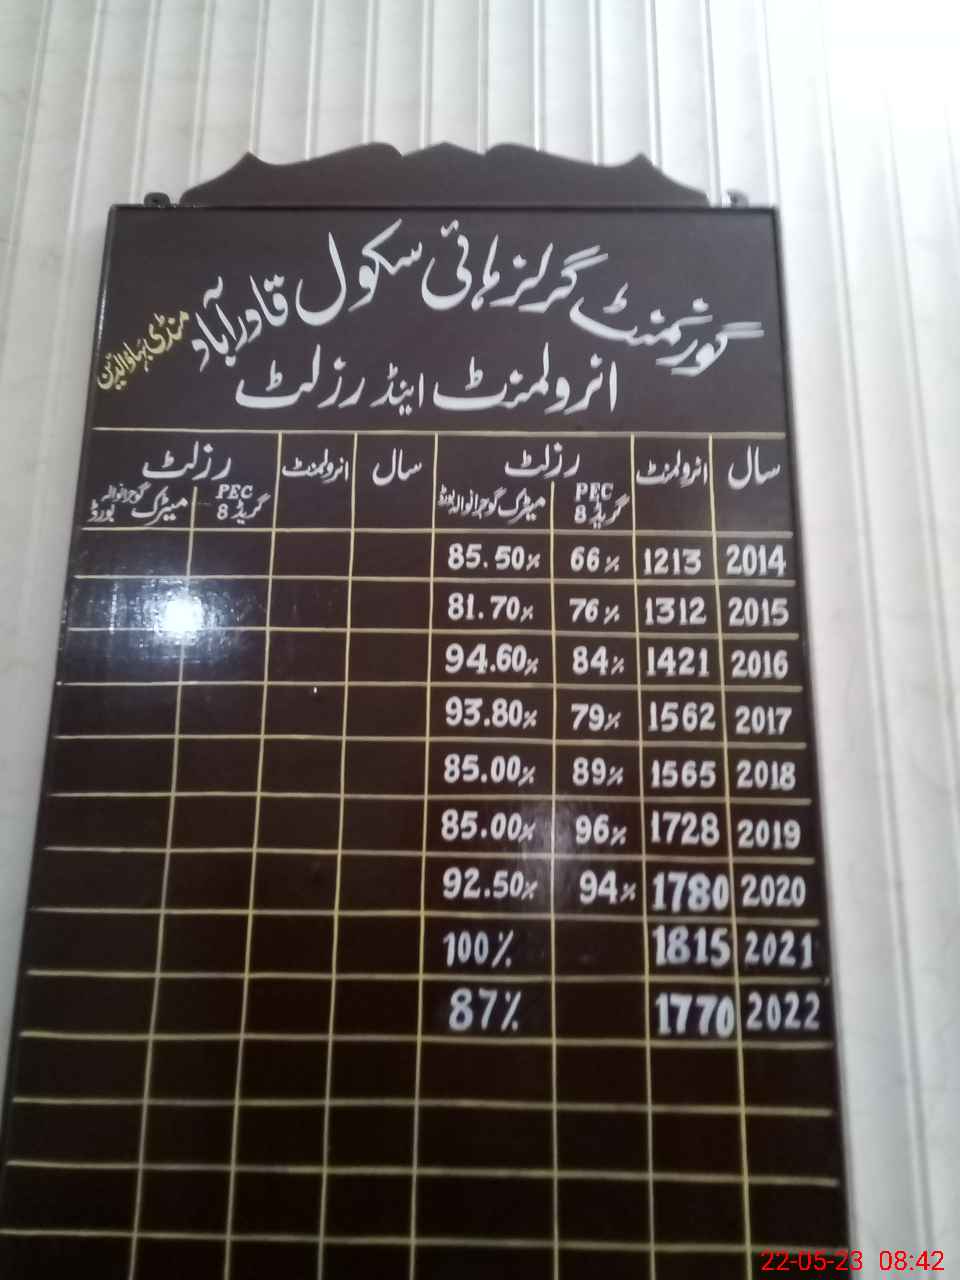 گورنمنٹ گرلز ہائی سکول قادرآباد منڈی بہاؤالدین
انرولمنٹ اینڈ رزلٹ
سال انرولمنٹ رزلٹ سال انرولمنٹ رزلٹ
PEC گریڈ 8 میٹرک گوجرانوالہ بورڈ PEC گریڈ 8 میٹرک گوجرانوالہ بورڈ
2014 1213 66% 85.50%
2015 1312 76% 81.70%
2016 1421 84% 94.60%
2017 1562 79% 93.80%
2018 1565 89% 85.00%
2019 1728 96% 85.00%
2020 1780 94% 92.50%
2021 1815 100%
2022 1770 87%
22-05-23 08:42